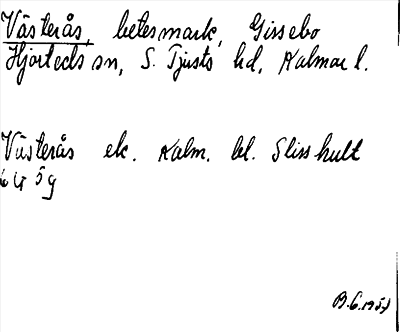 Västerås, betesmark, Gissebo
Hjorteds sn, S. Tjusts hd, Kalmar l.
Västerås ek. Kalm. bl. Slisshult
6G 5g
B.G. 1957